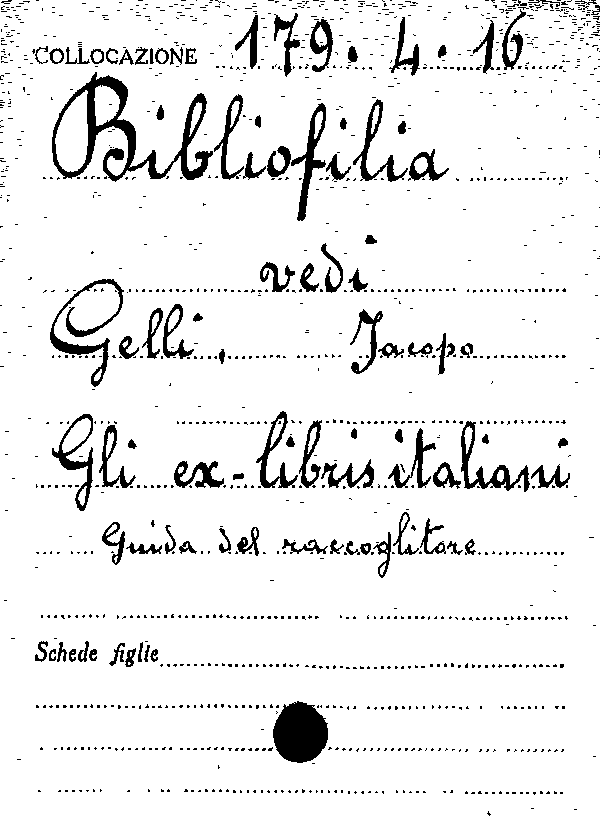 COLLOCAZIONE 179. 4. 16
Bibliofilia
vedi
Gelli, Jacopo
Gli ex-libris italiani
Guida del raccoglitore
Schede figlie